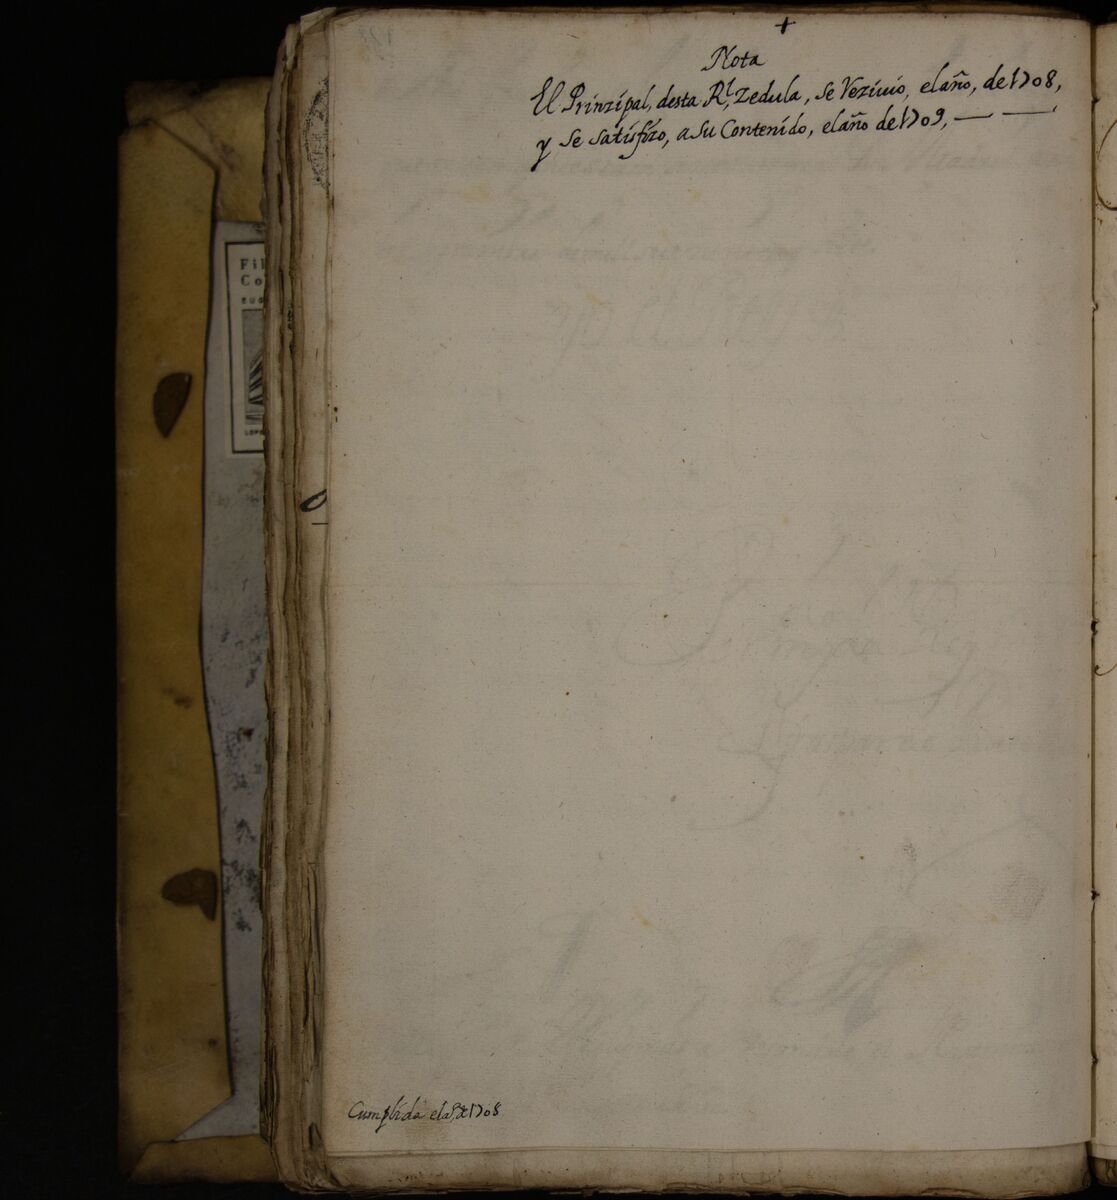 +
Nota
El Prinzipal, desta Rl, Zedula, se Reziuio, el año, de 1708,
y se satisfizo, a su Contenido, el año de 1709, — —
Fil
Co
Cumplida el aº, de 1708